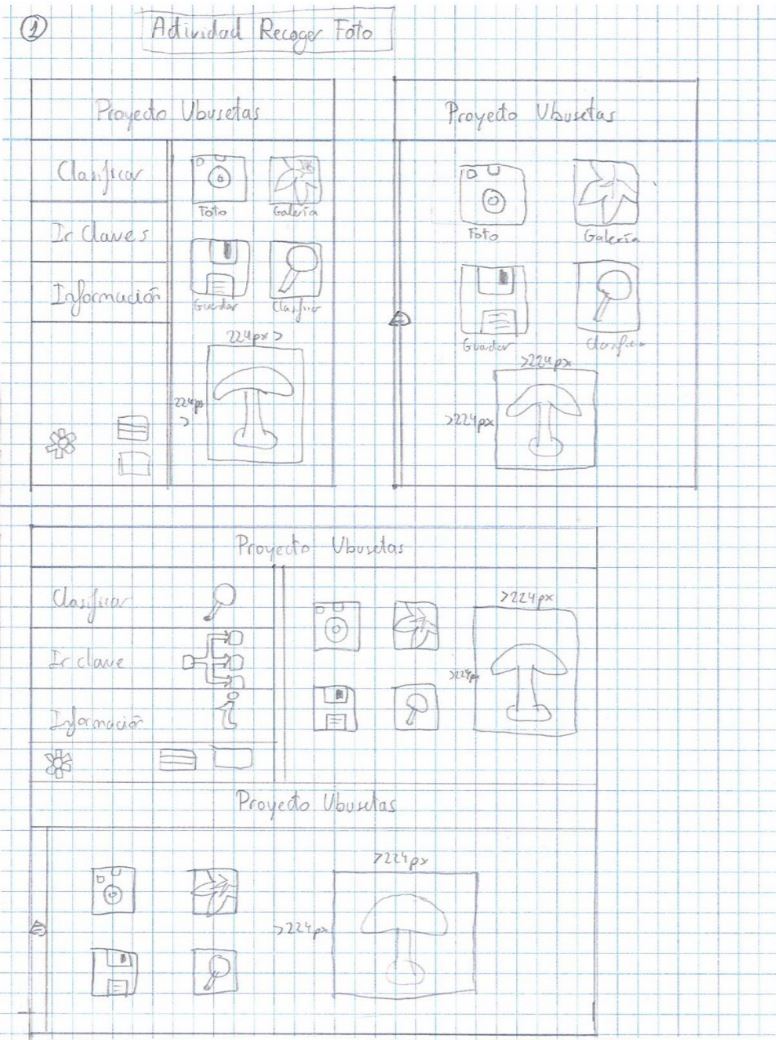 1
Actividad Recoger Foto
Proyecto Ubusetas
Clasificar
Ir Claves
Información
Foto
Galería
Guardar
Clasificar
224px >
224px
>
Proyecto Ubusetas
Foto
Galería
Guardar
Clasificar
>224px
>224px
Proyecto Ubusetas
Clasificar
Ir clave
Información
>224px
>224px
Proyecto Ubusetas
>224px
>224px